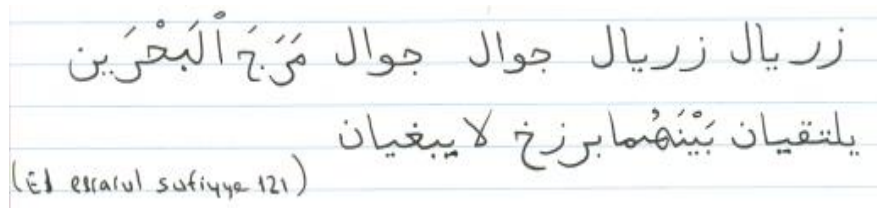 زريال زريال جوال جوال مَرَجَ ٱلْبَحْرَين
يلتقيان بَيْنَهُما برزخ لا يبغيان
(Ed esrarul sufiyye 121)